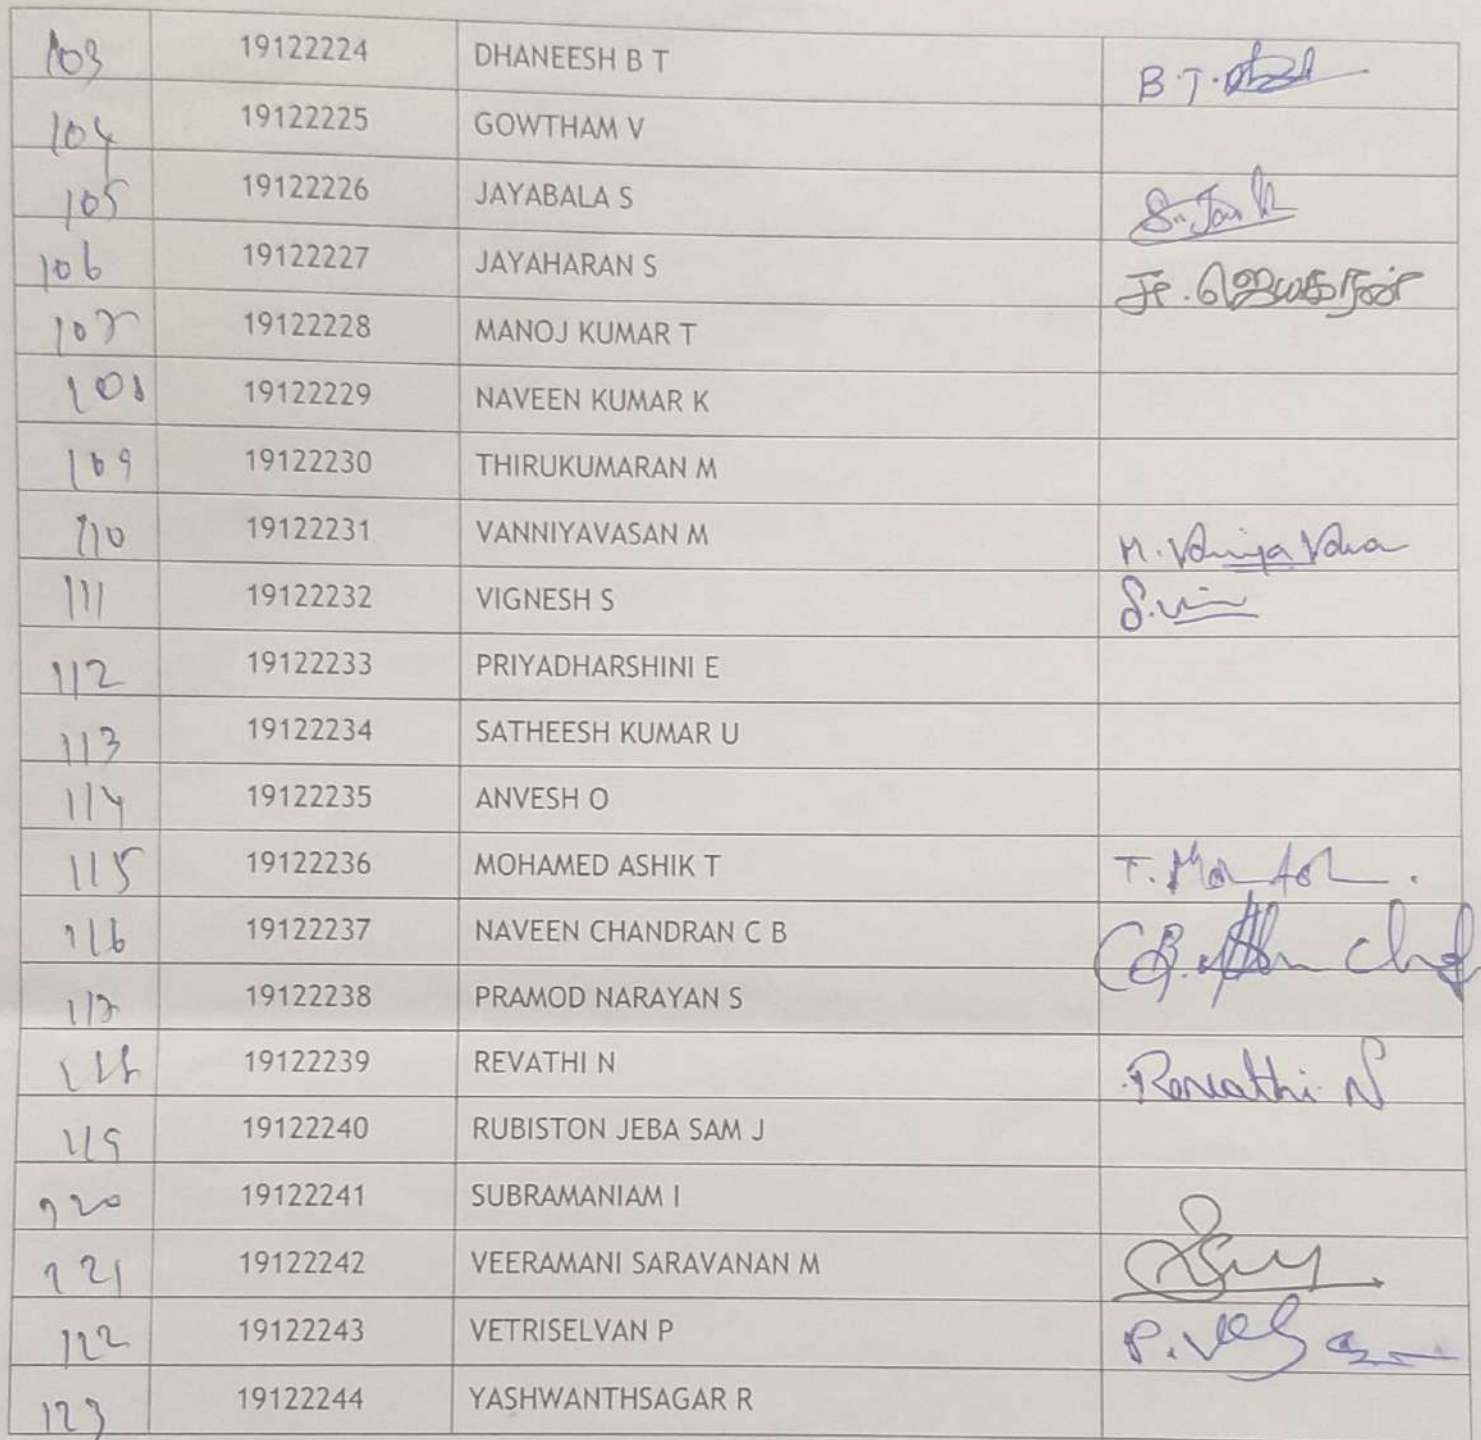 103 19122224 DHANEESH B T B.T.
104 19122225 GOWTHAM V
105 19122226 JAYABALA S
106 19122227 JAYAHARAN S ச. ஜெயகரன்
107 19122228 MANOJ KUMAR T
108 19122229 NAVEEN KUMAR K
109 19122230 THIRUKUMARAN M
110 19122231 VANNIYAVASAN M M.
111 19122232 VIGNESH S
112 19122233 PRIYADHARSHINI E
113 19122234 SATHEESH KUMAR U
114 19122235 ANVESH O
115 19122236 MOHAMED ASHIK T T.
116 19122237 NAVEEN CHANDRAN C B
117 19122238 PRAMOD NARAYAN S
118 19122239 REVATHI N Revathi N
119 19122240 RUBISTON JEBA SAM J
120 19122241 SUBRAMANIAM I
121 19122242 VEERAMANI SARAVANAN M
122 19122243 VETRISELVAN P P.
123 19122244 YASHWANTHSAGAR R